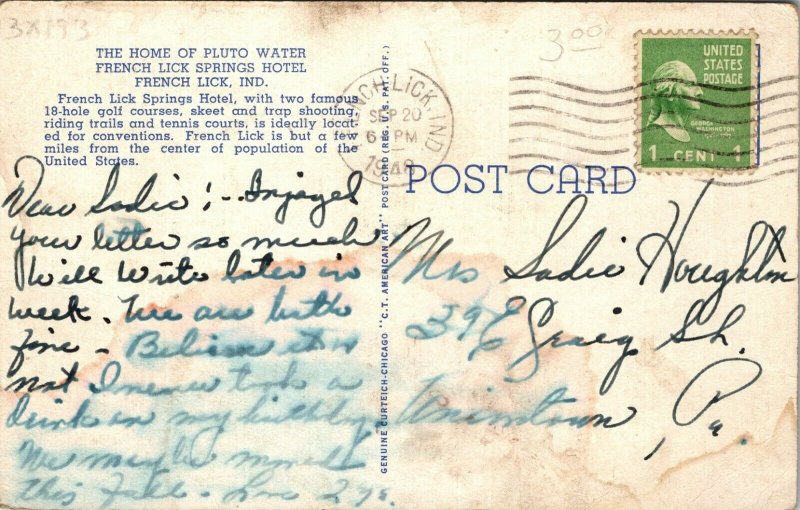 3X193
3.00
THE HOME OF PLUTO WATER
FRENCH LICK SPRINGS HOTEL
FRENCH LICK, IND.
French Lick Springs Hotel, with two famous
18-hole golf courses, skeet and trap shooting,
riding trails and tennis courts, is ideally locat-
ed for conventions. French Lick is but a few
miles from the center of population of the
United States.
FRENCH LICK, IND
SEP 20
PM
1948
UNITED
STATES
POSTAGE
GEORGE
WASHINGTON
1 CENT 1
POST CARD
GENUINE CURTEICH-CHICAGO "C.T. AMERICAN ART" POST CARD (REG. U.S. PAT. OFF.)
Dear Sadie :-- Enjoyed
your letter so much
Will Write later in
week. We are both
fine - Believe it or
not I never took a
drink on my birthday.
We may be
this Fall - Love
Mrs Sadie Houghton
396 Craig St.
Uniontown, Pa.